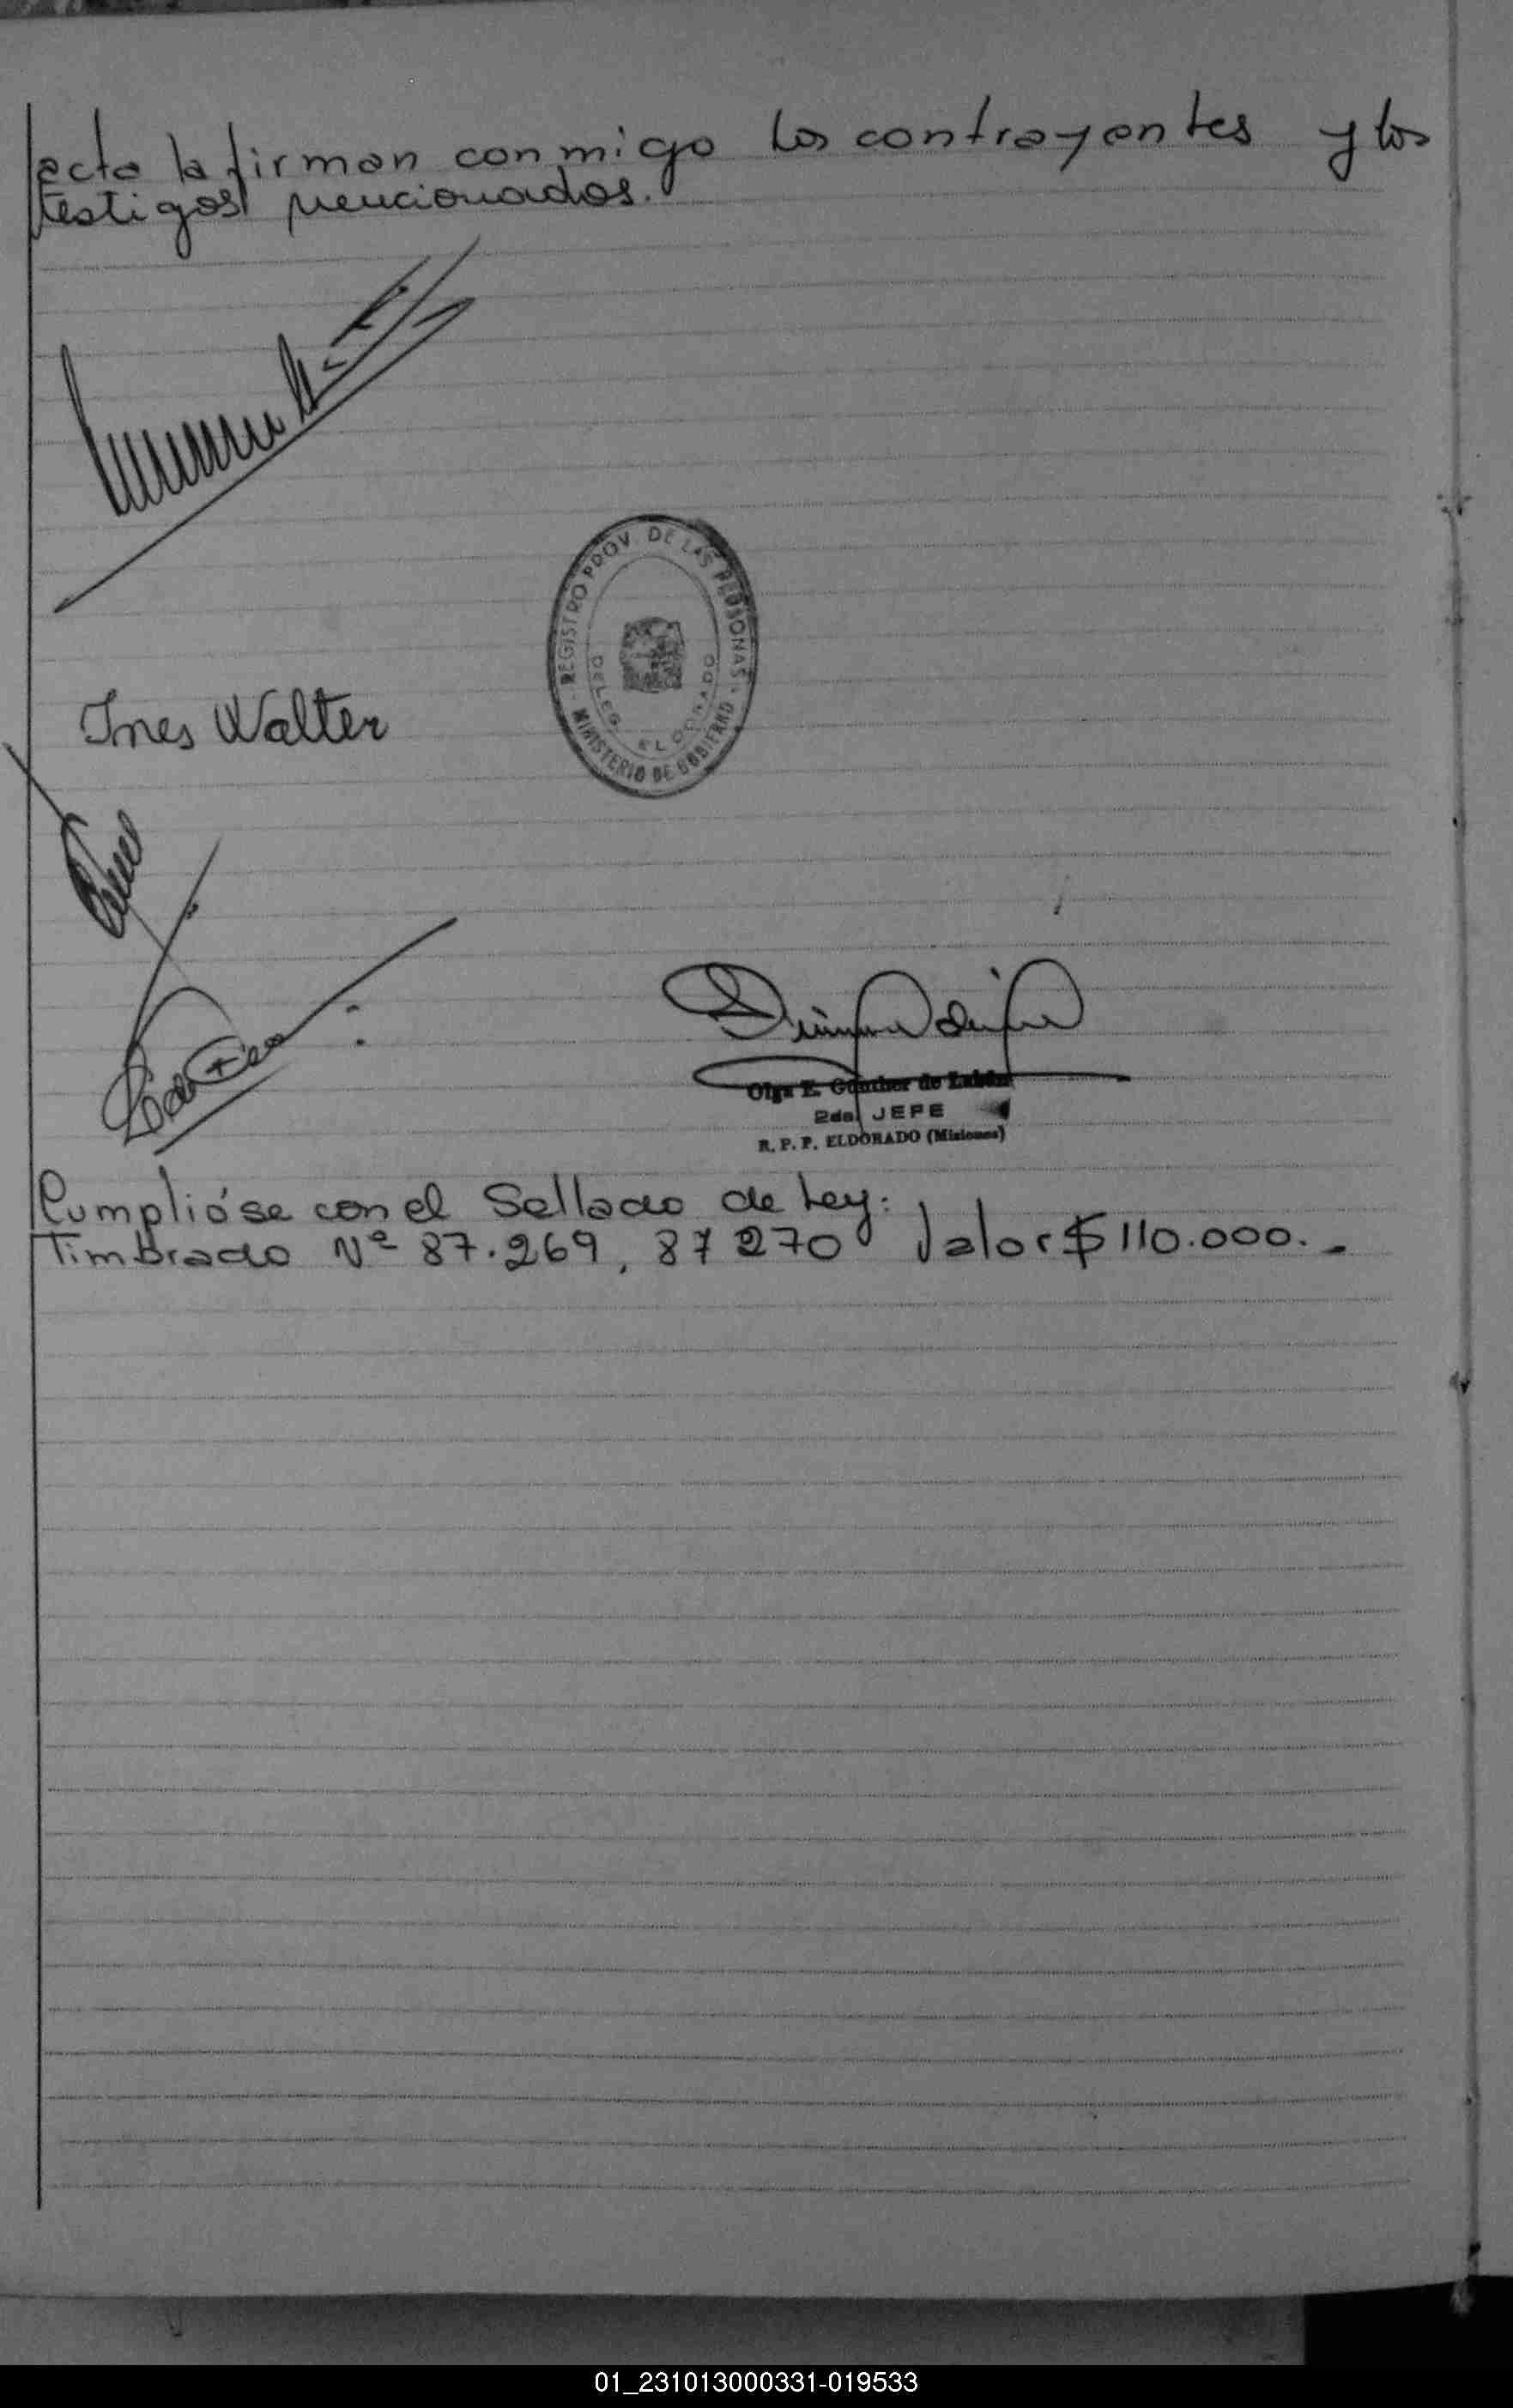 acta la firman conmigo los contrayentes y los
testigos mencionados.
REGISTRO PROV. DE LAS PERSONAS
DELEG. ELDORADO
MINISTERIO DE GOBIERNO
Ines Walter
Olga E. Günther de
2da. JEFE
R. P. P. ELDORADO (Misiones)
Cumplióse con el Sellado de Ley:
Timbrado Nº 87.269, 87270 Valor $ 110.000.-
01_231013000331-019533